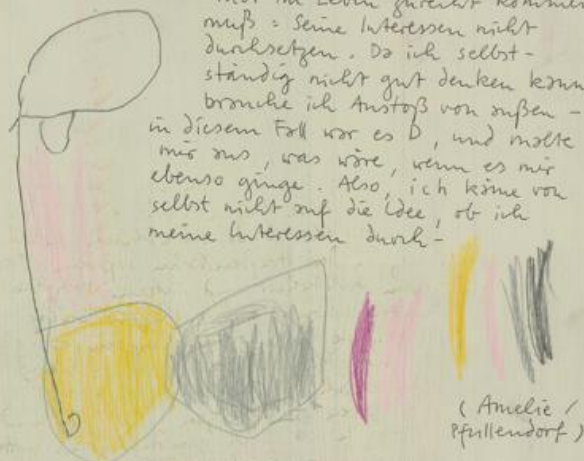 im Leben zurecht kommen
muß = Seine Interessen nicht
durchsetzen. Da ich selbst-
ständig nicht gut denken kann
brauche ich Anstoß von außen -
in diesem Fall war es D, und malte
mir aus, was wäre, wenn es mir
ebenso ginge. Also, ich käme von
selbst nicht auf die Idee, ob ich
meine Interessen durch-
(Amelie /
Pfullendorf)